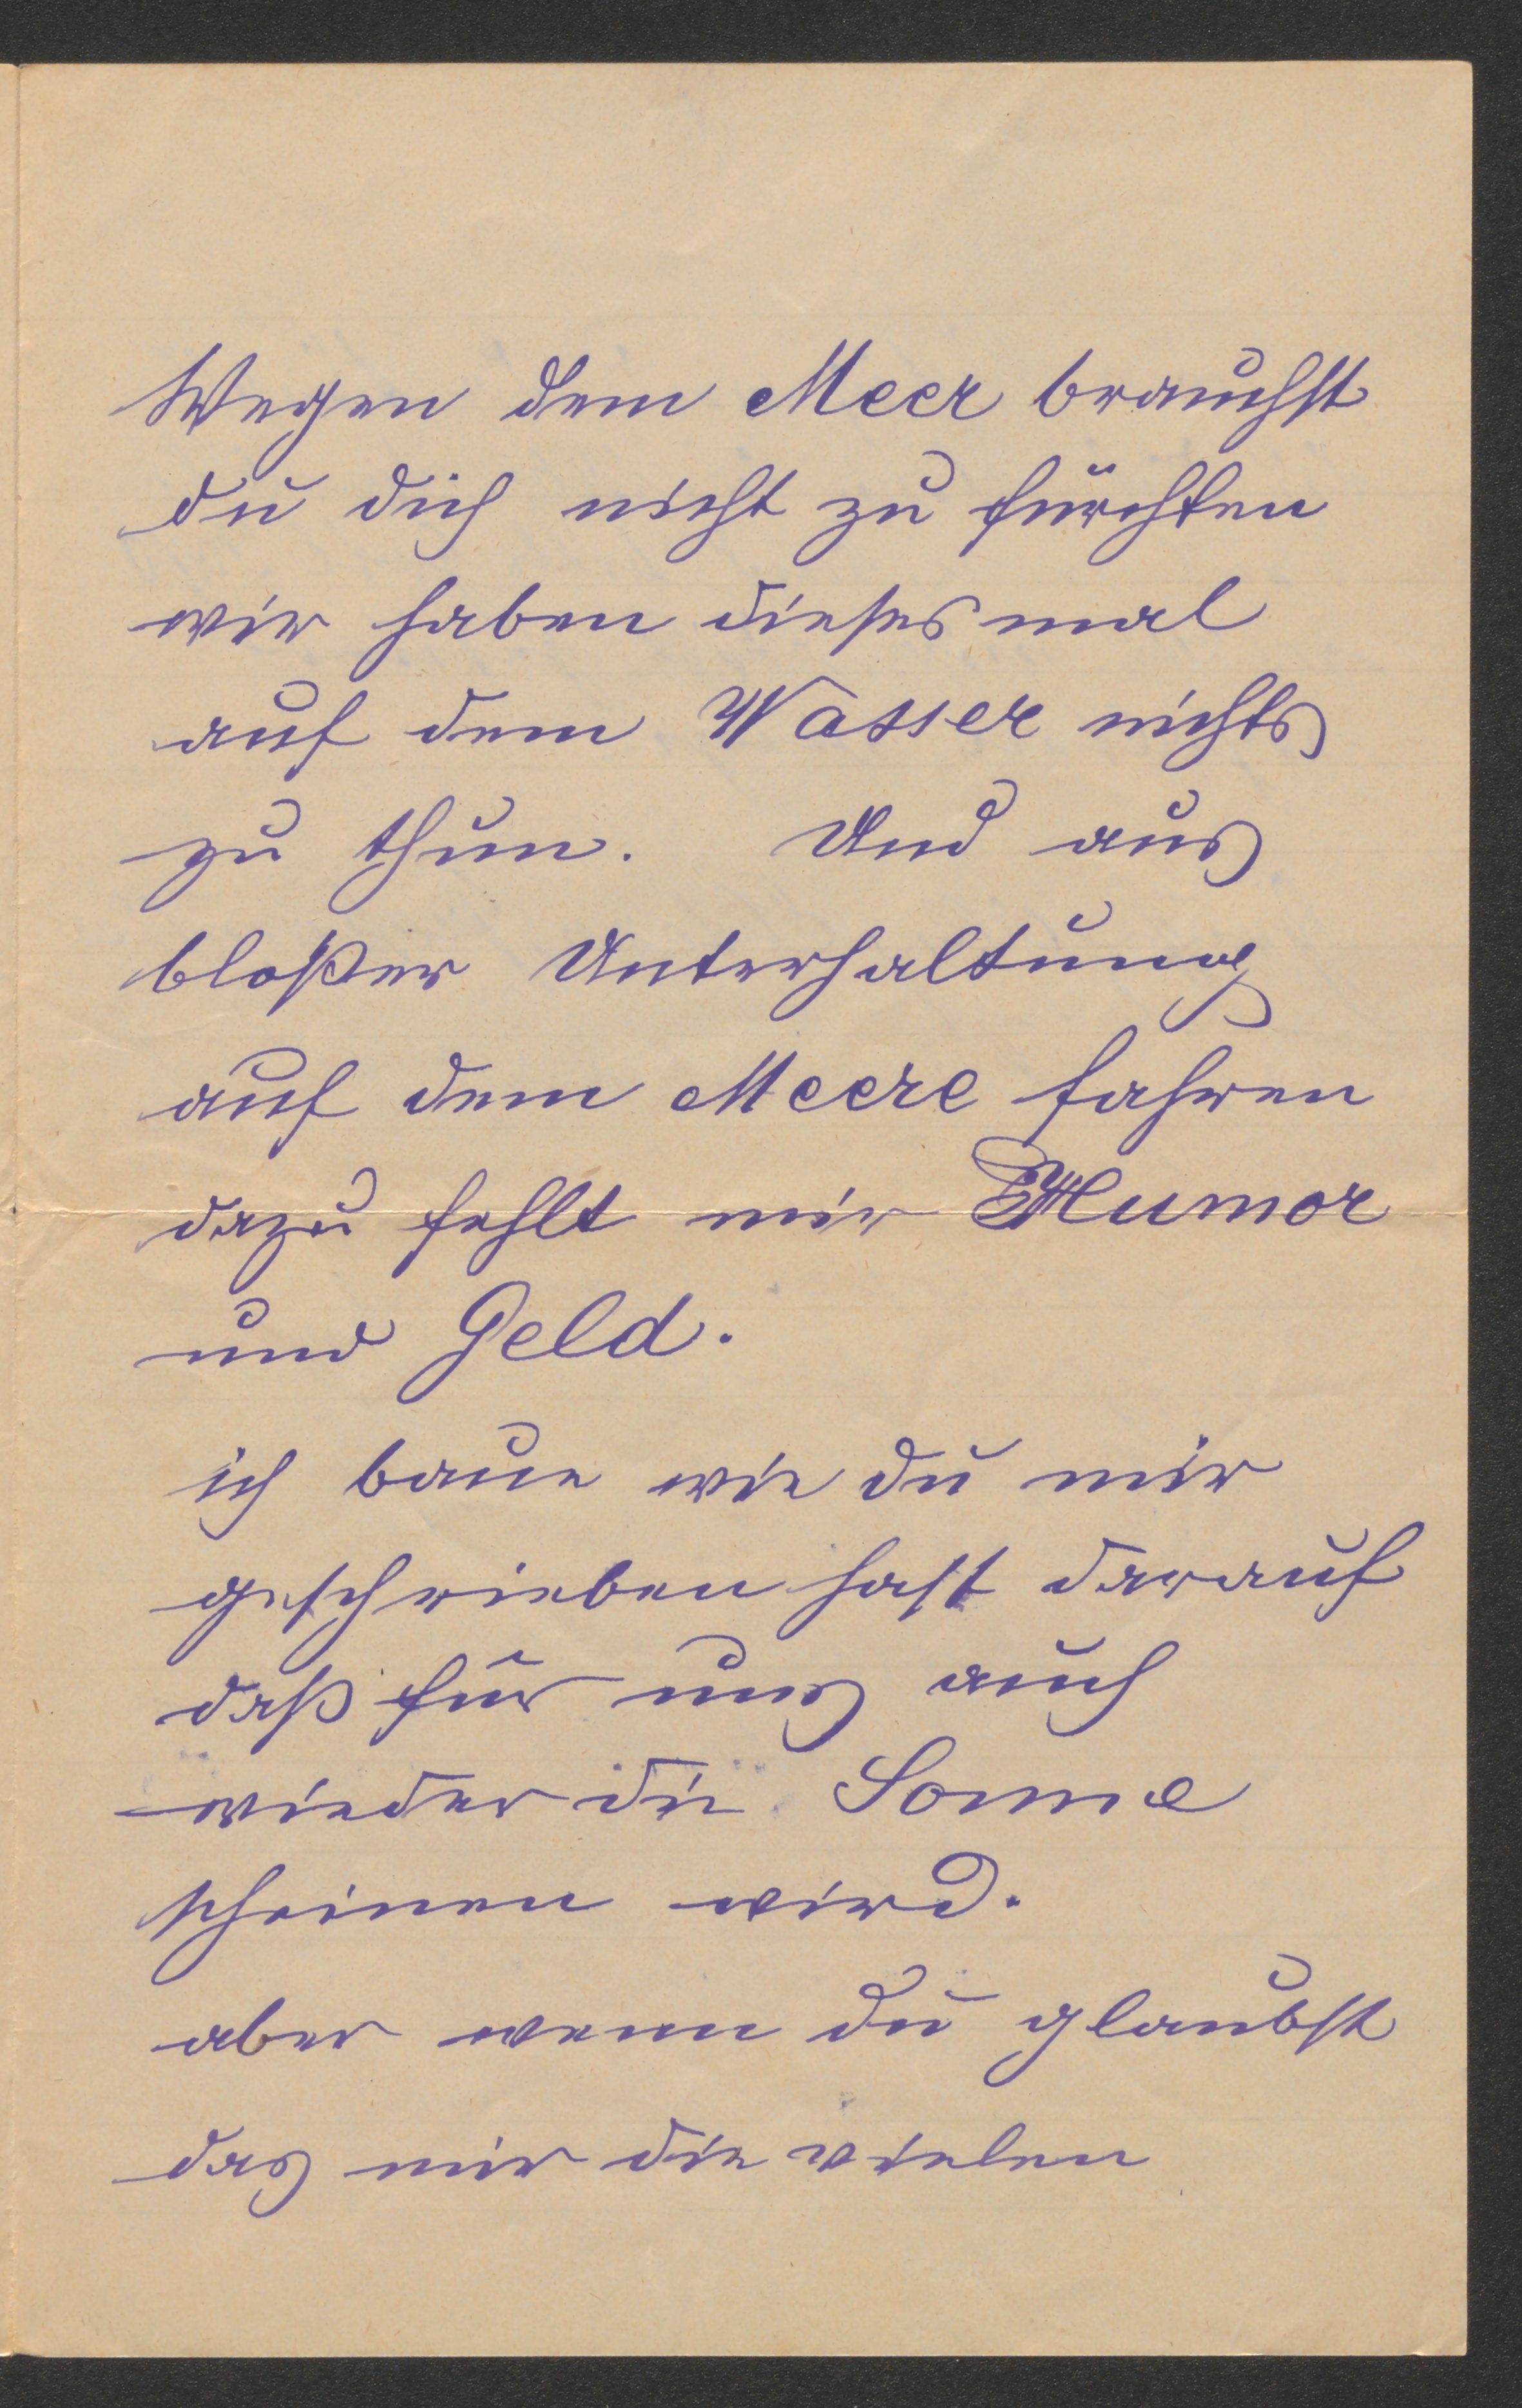 Wegen dem Meer brauchst
du dich nicht zu fürchten
wir haben dieses mal
auf dem Wasser nichts
zu thun. Und aus
bloßer Unterhaltung
auf dem Meere fahren
dazu fehlt mir Humor
und Geld.
ich baue wie du mir
geschrieben hast darauf
daß für uns auch
wieder die Sonne
scheinen wird.
aber wenn du glaubst
das mir die vielen